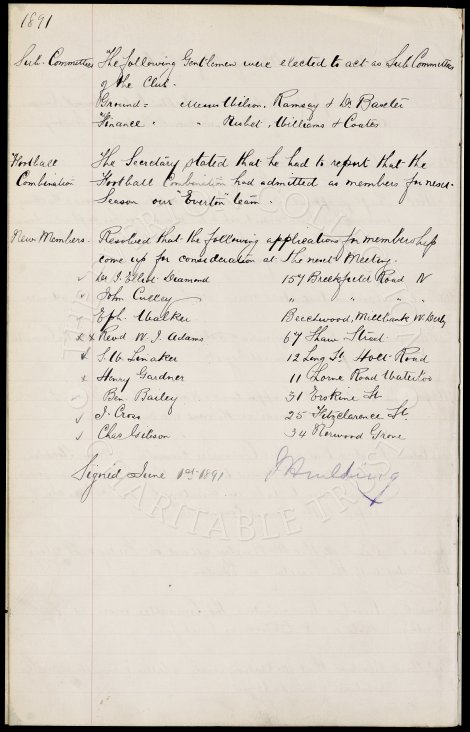 1891
Sub. Committees The following Gentlemen were elected to act as Sub Committees
of the Club.
Ground = Messrs Wilson, Ramsay & Dr Baxter
Finance " " Nisbet, Williams & Coates
Football The Secretary stated that he had to report that the
Combination "Football Combination" had admitted as members for next
Season our "Everton" team.
New Members. Resolved that the following applications for membership
come up for consideration at the next Meeting.
Dr J. Elliot Diamond 157 Breckfield Road N
John " " " "
Eph. Walker Beechwood, Millbank W Derby
x x Revd W. J. Adams 67 Shaw Street
S. W. Linaker 12 Long St Holt Road
x Henry Gardner 11 Lorne Road Waterloo
Ben. Bailey 31 Erskine St
J. Cross 25 Fitzclarence St
Chas Gibson 34 Norwood Grove
Signed June 1st 1891 J Houlding
CHARITABLE TRUST